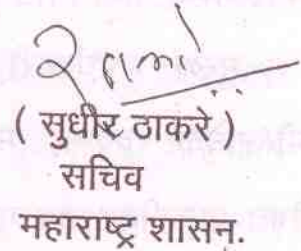 ( सुधीर ठाकरे )
सचिव
महाराष्ट्र शासन.